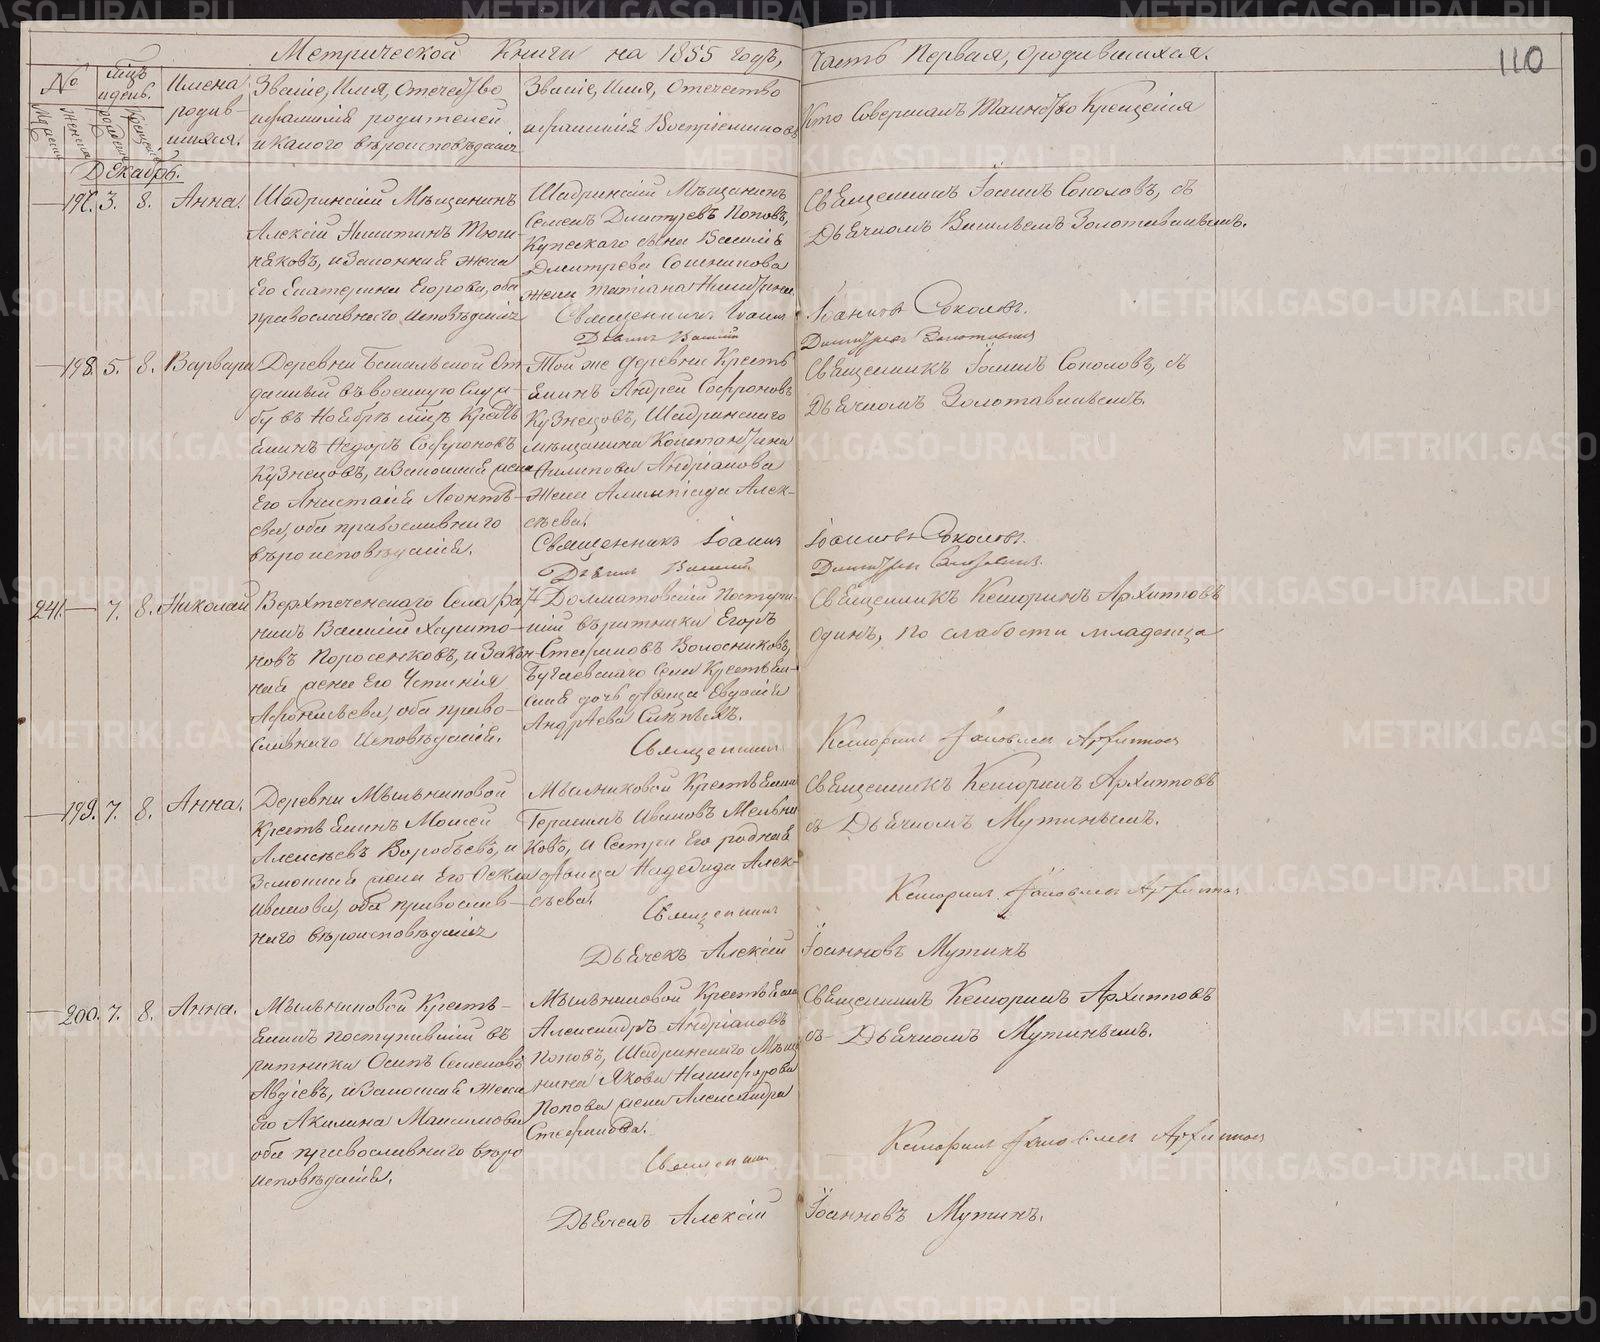 Метрической Книги на 1855 годъ, часть Первая, о родившихся.
110
№
мцъ и день.
Имена родившихся.
Званіе, Имя, Отечество и фамилія родителей и какого вѣроисповѣданія
Званіе, Имя, Отечество и фамилія Воспріемниковъ
Кто Совершалъ Таинство Крещенія
Декабрь.
197. 3. 8. Анна.
Шадринскій Мѣщанинъ
Алексѣй Никитинъ
и Законная жена
Его Екатерина Егорова, оба
православнаго исповѣданія
Шадринскій Мѣщанинъ
Семенъ Дмитревъ Поповъ,
Купескаго сына Василія
Дмитрева
жена Татіана Никитина.
Священникъ Іоаннъ
Дьячекъ Василій
Священникъ Іоаннъ Соколовъ, съ
Дьячкомъ Васильемъ Золотавинымъ.
Іоанновъ Соколовъ.
198. 5. 8. Варвара
Деревни Бакальской От
данный въ военную Служ
бу въ Ноябрѣ мцѣ Кресть
янинъ Ѳедоръ Софроновъ
Кузнецовъ, и Законная жена
Его Анастасія Леонть
ева, оба православнаго
вѣроисповѣданія.
Той же деревни Кресть
янинъ Андрей Софроновъ
Кузнецовъ, Шадринскаго
мѣщанина Константина
Филипова Андріанова
жена Алимпіада Алек-
сѣева.
Священникъ Іоаннъ
Дьячекъ Василій
Священникъ Іоаннъ Соколовъ, съ
Дьячкомъ Золотавинымъ.
Іоанновъ Соколовъ.
241. 7. 8. Николай
Верхтеченскаго Села
Василій Харито-
новъ Поросенковъ, и Закон-
ная жена Его Устинія
Афонасьева, оба право-
славнаго Исповѣданія.
Долматовскій поступи-
вшій въ ратники Егоръ
Стефановъ Колосниковъ,
Бугаевскаго Села Крестьян-
ская дочь дѣвица Евдокія
Андрѣева
Священникъ
Священникъ Кесторинъ Архиповъ
одинъ, по слабости младенца
Кесторинъ Яковлевъ Архиповъ
199. 7. 8. Анна.
Деревни Мыльниковой
Крестьянинъ Моисей
Алексѣевъ Воробьевъ, и
Законная жена Его
Иванова, оба православ-
наго вѣроисповѣданія
Мыльниковой Крестьянинъ
Герасимъ Ивановъ Мельни
ковъ, и Сестра Его родная
дѣвица Надежда Алек-
сѣева.
Священникъ
Дьячекъ Алексѣй
Священникъ Кесторинъ Архиповъ
съ Дьячкомъ Мутинымъ.
Кесторинъ Яковлевъ Архиповъ
Іоанновъ Мутинъ
200. 7. 8. Анна.
Мыльниковой Кресть-
янинъ поступившій въ
ратники Осипъ Семеновъ
Авдѣевъ, и Законная жена
Его Акилина Максимова
оба православнаго вѣро
исповѣданія.
Мыльниковой Крестьянинъ
Александръ Андріановъ
Поповъ, Шадринскаго Мѣща
нина Якова Никифорова
Попова жена Александра
Стефанова.
Священникъ
Дьячекъ Алексѣй
Священникъ Кесторинъ Архиповъ
съ Дьячкомъ Мутинымъ.
Кесторинъ Яковлевъ Архиповъ
Іоанновъ Мутинъ.
METRIKI.GASO-URAL.RU